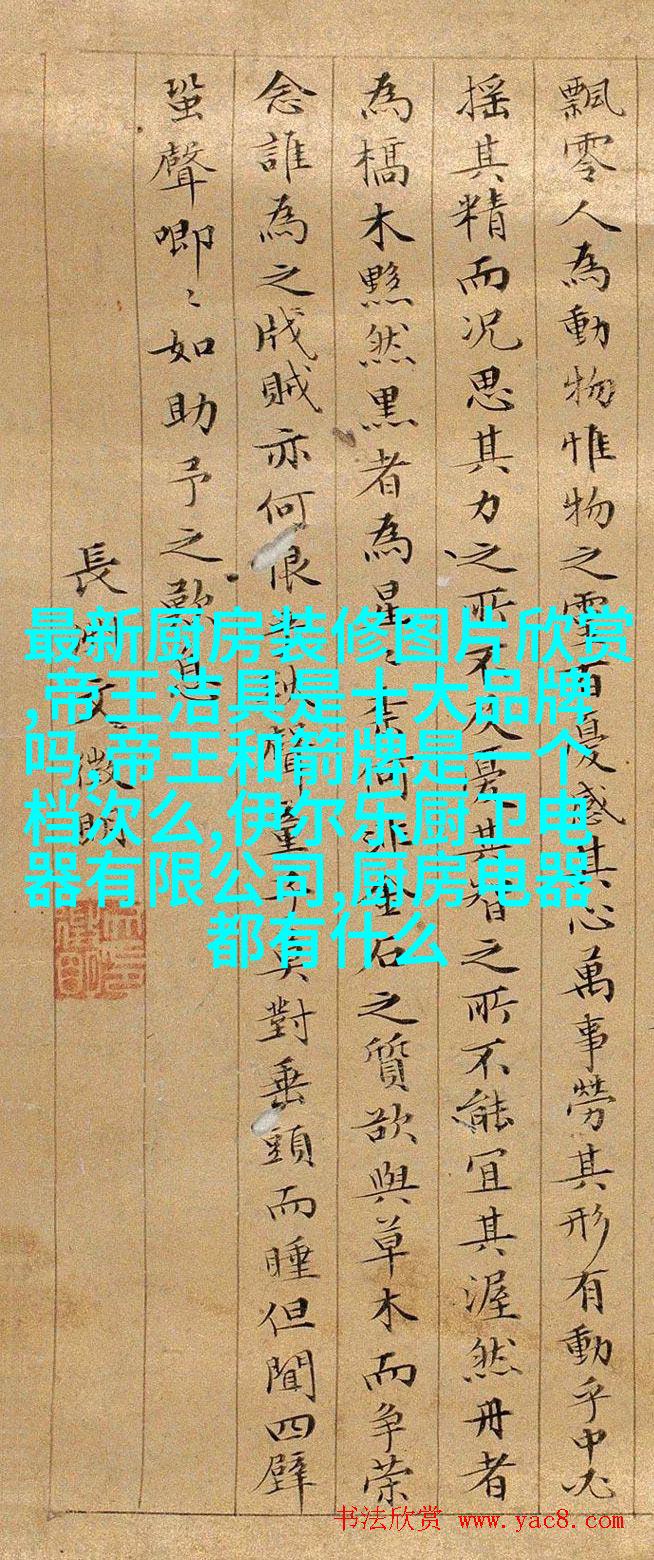 飄零人為動物惟物之靈百憂感其心萬事勞其形有動乎中必
搖其精而況思其力之所不及憂其智之所不能宜其渥然丹者
為槁木黟然黑者為星〻奈何非金石之質欲與草木而爭榮
念誰為之戕賊亦何恨乎秋聲童子莫對垂頭而睡但聞四壁
蛩聲唧〻如助予之歎息
長洲文徵明
最新厨房装修图片欣赏
,帝王洁具是十大品牌
吗,帝王和箭牌是一个
档次么,伊尔乐厨卫电
器有限公司,厨房电器
都有什么
书法欣赏 www.yac8.com